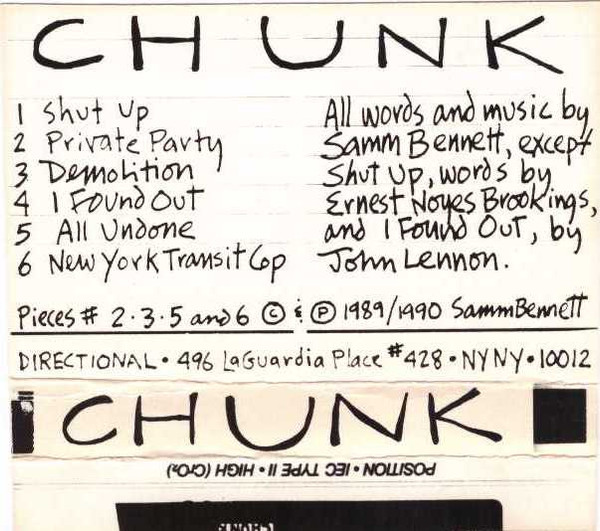 CHUNK
1 Shut Up
2 Private Party
3 Demolition
4 I Found Out
5 All Undone
6 New York Transit Cop
All words and music by
Samm Bennett, except
Shut Up, words by
Ernest Noyes Brookings,
and I Found Out, by
John Lennon.
Pieces # 2·3·5 and 6 © & ℗ 1989/1990 Samm Bennett
DIRECTIONAL • 496 LaGuardia Place #428 • NY NY • 10012
CHUNK
POSITION • IEC TYPE II • HIGH (CrO₂)
CHUNK